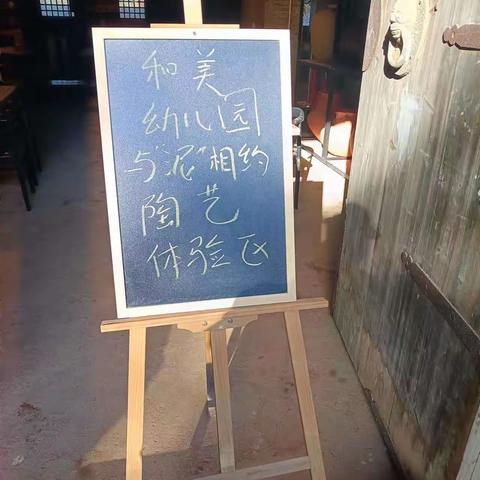 和美
幼儿园
与"泥"相约
陶艺
体验区